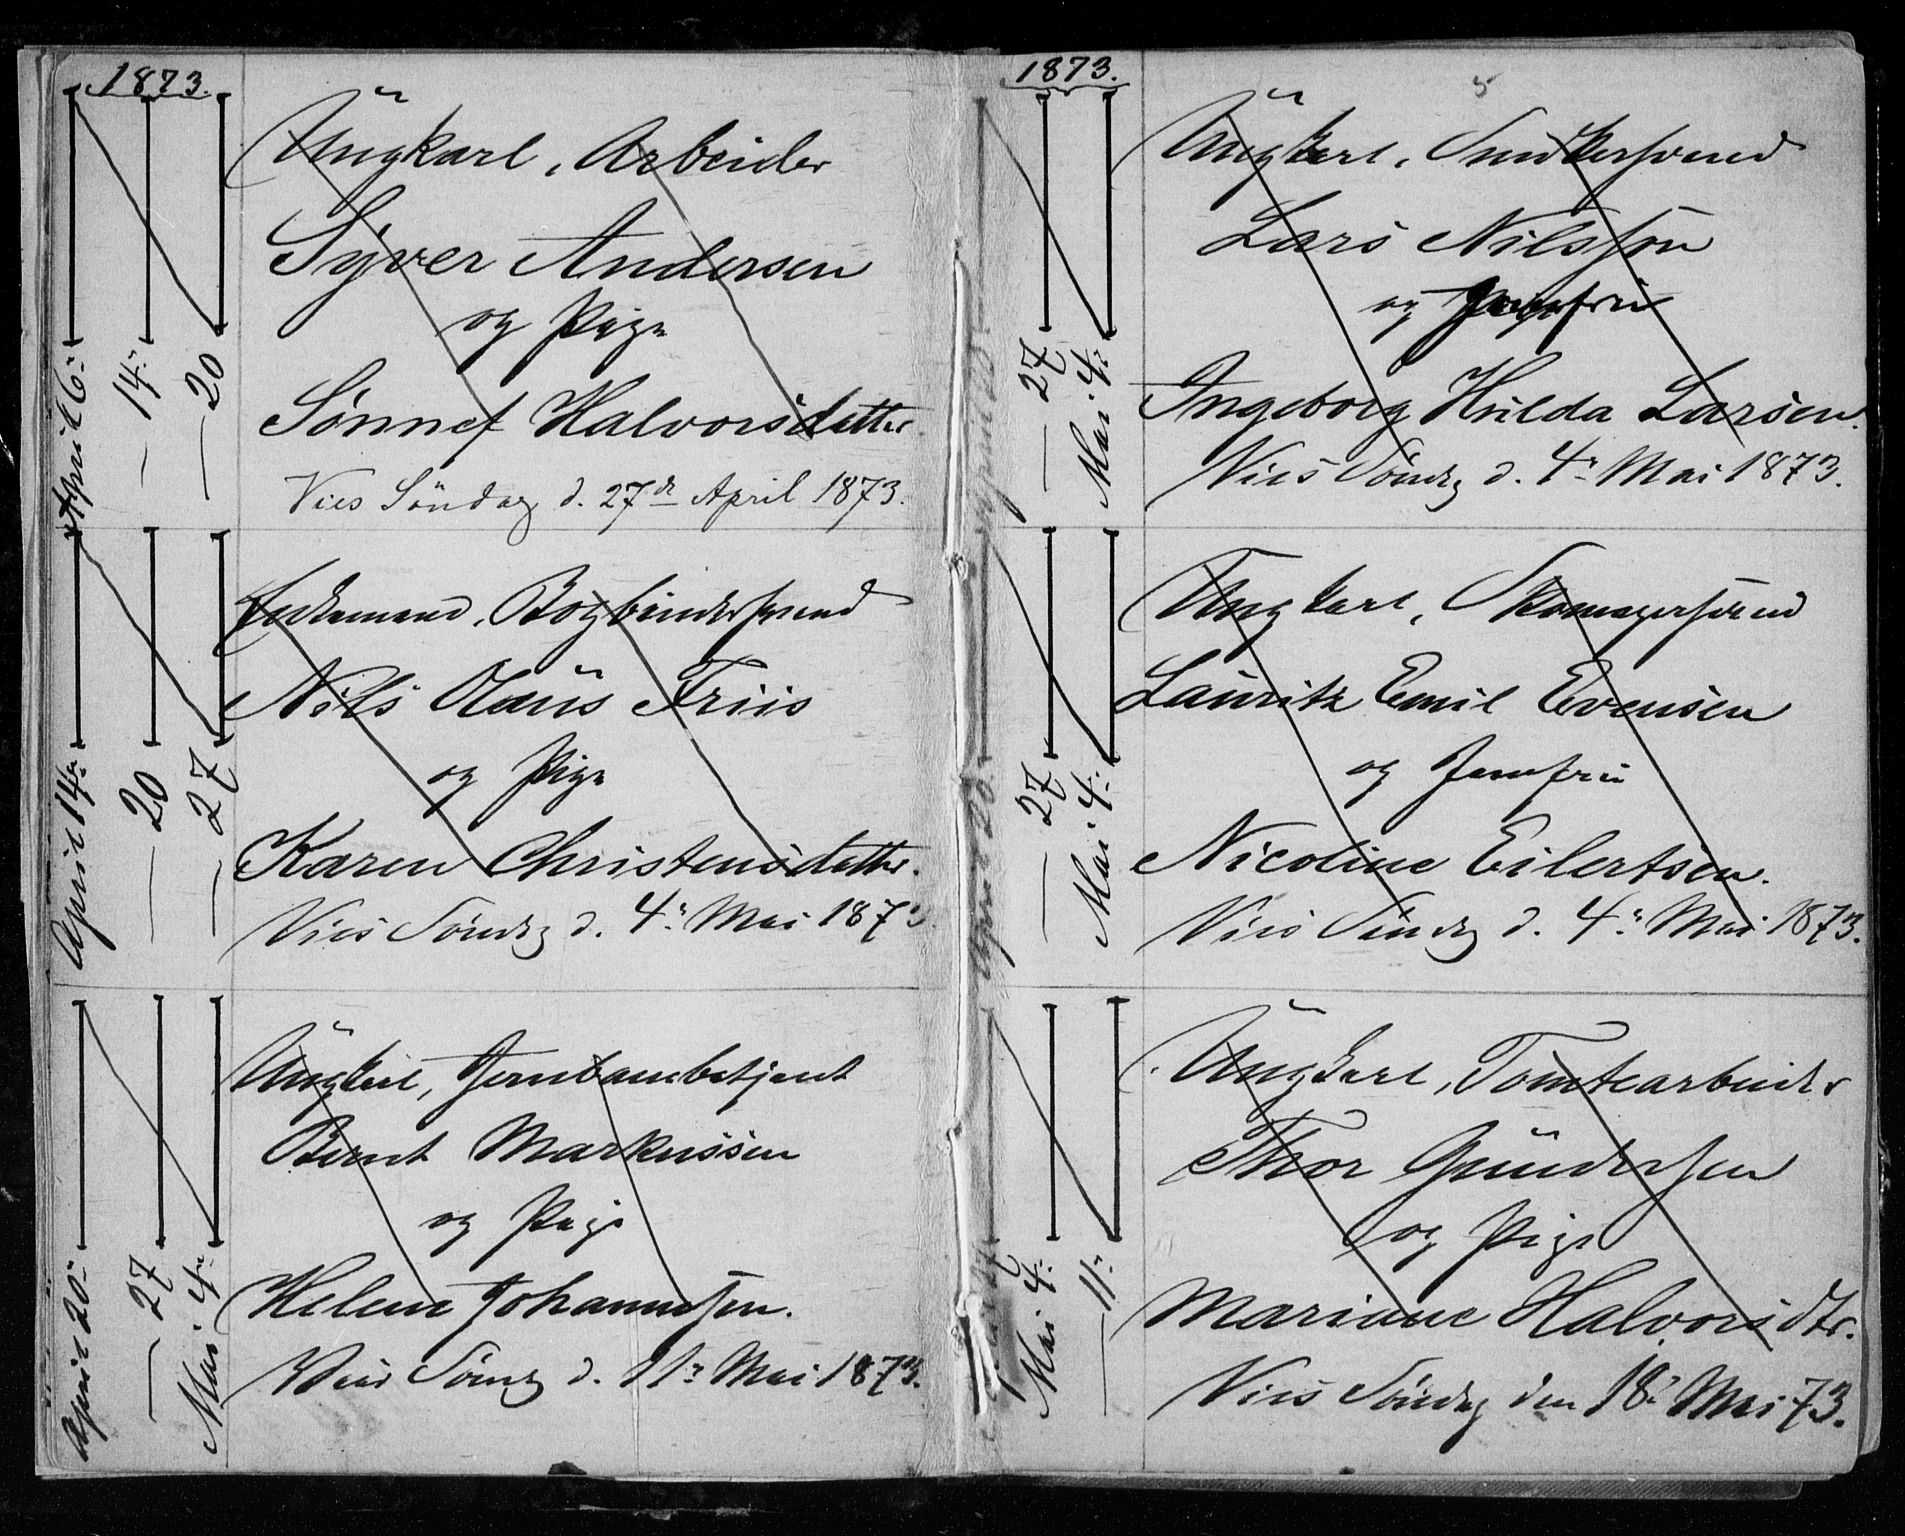 1873.
April 6.
— 14.
— 20
Ungkarl, Arbeider
Syver Andersen
og Pige
Sønnef Halvorsdatter
Vies Söndag d. 27de April 1873.
April 14.
— 20
— 27
Enkemand, Bogbindersvend
Nils Olaus Friis
og Pige
Karen Christensdatter.
Vies Søndag d. 4. Mai 1873
April 20.
— 27
Mai 4.
Ungkarl, Jernbanebetjent
Bernt Markussen
og Pige
Helene Johannesen.
Vies Søndag d. 11. Mai 1873.
1873.
5
— 27
Mai 4.
Ungkarl, Snedkersvend
Lars Nilsson
og Jomfru
Ingeborg Hulda Larsen.
Vies Søndag d. 4. Mai 1873.
April 20.
— 27
Mai 4.
Ungkarl, Skomagersvend
Lauritz Emil Evensen
og Jomfru
Nicoline Eilertsen.
Vies Søndag d. 4. Mai 1873.
Mai 4.
— 11.
Ungkarl, Tomtearbeider
Thor Gundersen
og Pige
Mariane Halvorsdtr.
Vies Søndag den 18. Mai 73.